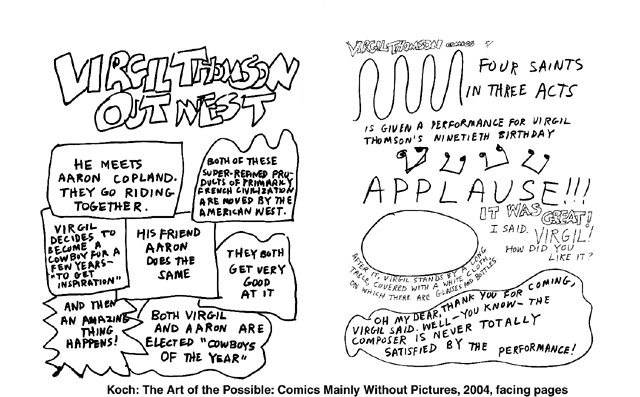 VIRGIL THOMSON
OUT WEST
HE MEETS
AARON COPLAND.
THEY GO RIDING
TOGETHER.
BOTH OF THESE
SUPER-REFINED PRO-
DUCTS OF PRIMARILY
FRENCH CIVILIZATION
ARE MOVED BY THE
AMERICAN WEST.
VIRGIL
DECIDES TO
BECOME A
COWBOY FOR A
FEW YEARS–
"TO GET
INSPIRATION"
HIS FRIEND
AARON
DOES THE
SAME
THEY BOTH
GET VERY
GOOD
AT IT
AND THEN
AN AMAZING
THING
HAPPENS!
BOTH VIRGIL
AND AARON ARE
ELECTED "COWBOYS
OF THE YEAR"
VIRGIL THOMSON COMICS
FOUR SAINTS
IN THREE ACTS
IS GIVEN A PERFORMANCE FOR VIRGIL
THOMSON'S NINETIETH BIRTHDAY
APPLAUSE!!!
IT WAS GREAT!
I SAID. VIRGIL!
HOW DID YOU
LIKE IT?
AFTER IT, VIRGIL STANDS BY A LONG
TABLE, COVERED WITH A WHITE CLOTH,
ON WHICH THERE ARE GLASSES AND BOTTLES
OH MY DEAR, THANK YOU FOR COMING,
VIRGIL SAID. WELL–YOU KNOW–THE
COMPOSER IS NEVER TOTALLY
SATISFIED BY THE PERFORMANCE!
Koch: The Art of the Possible: Comics Mainly Without Pictures, 2004, facing pages